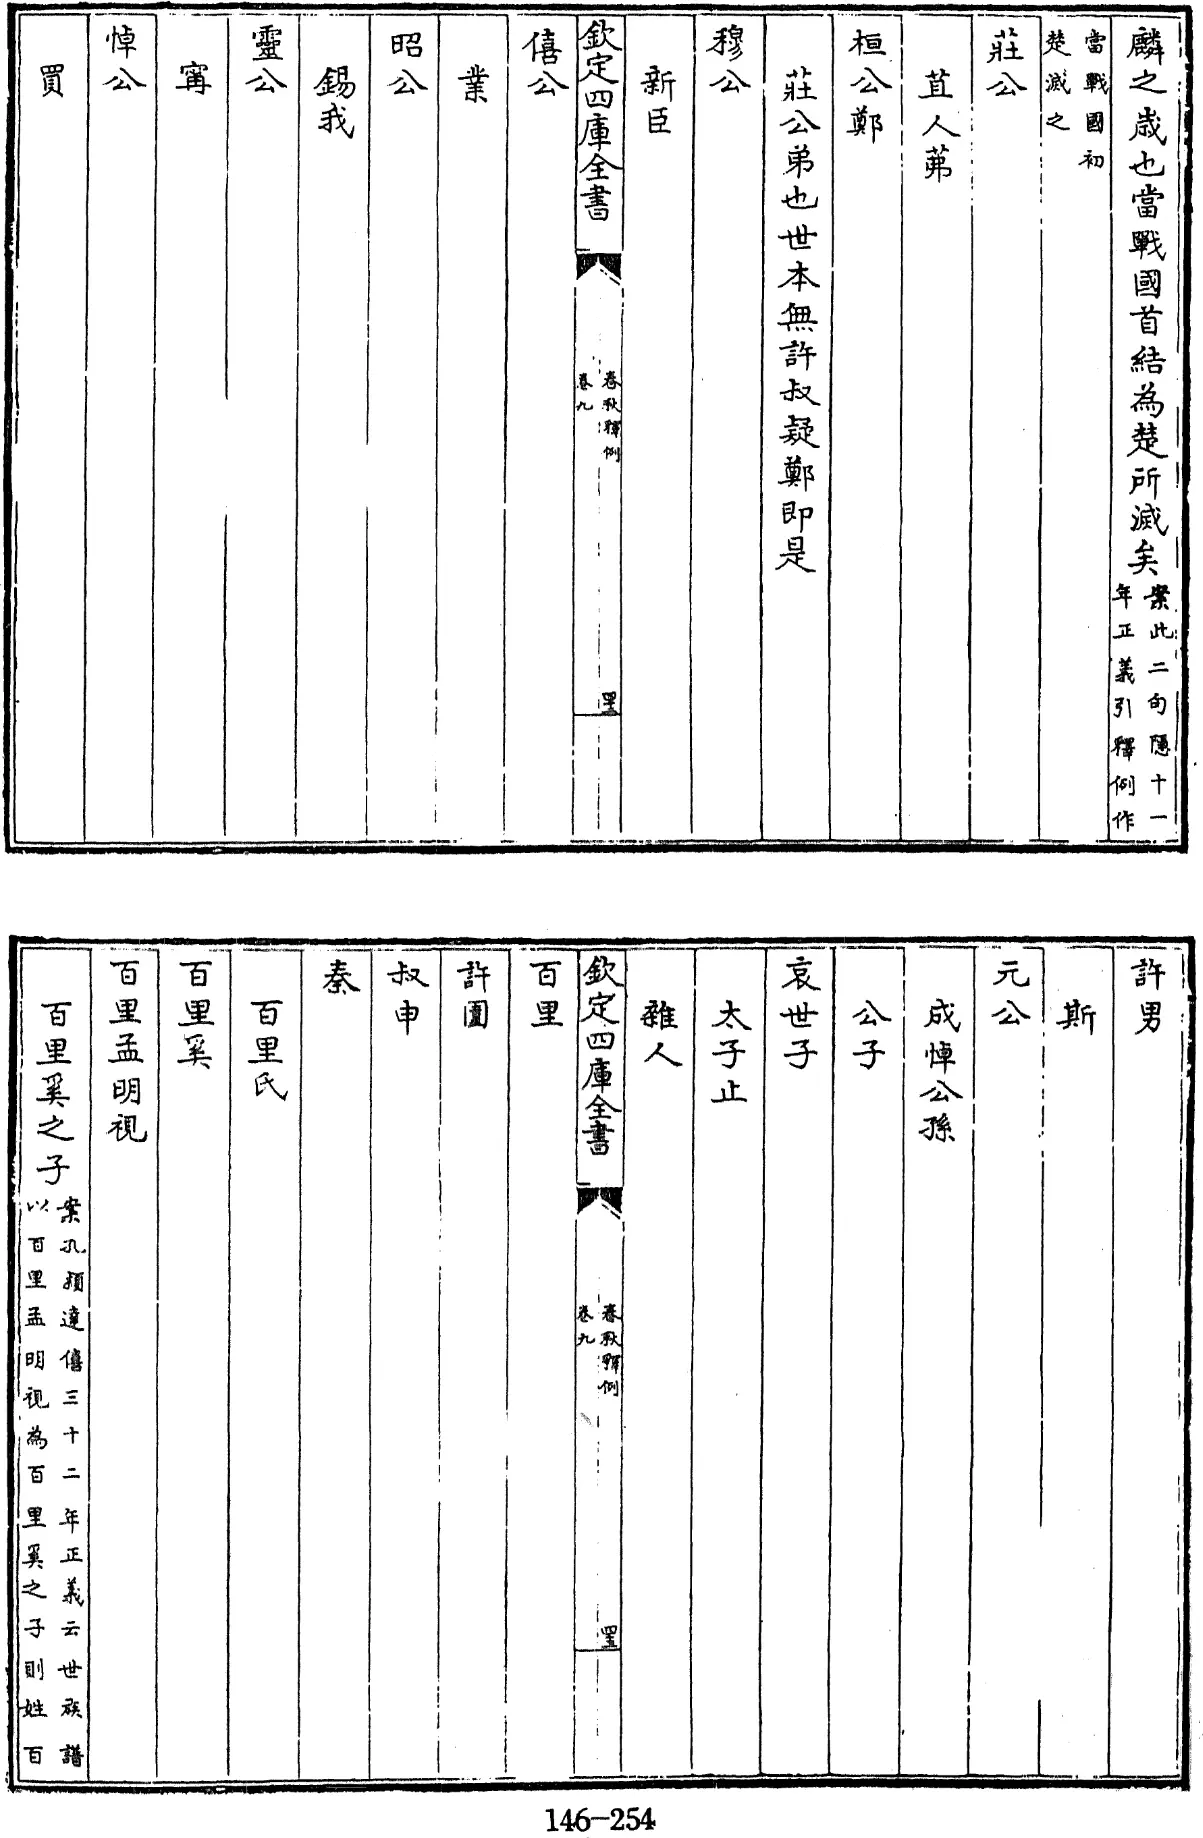 麟之歲也當戰國首結為楚所滅矣案此二句隱十一
年正義引釋例作
當戰國初
楚滅之
莊公
苴人茀
桓公鄭
莊公弟也世本無許叔疑鄭即是
穆公
新臣
欽定四庫全書
春秋釋例
卷九
僖公
業
昭公
錫我
靈公
甯
悼公
買
許男
斯
元公
成悼公孫
公子
哀世子
太子止
雜人
欽定四庫全書
春秋釋例
卷九
百里
許圍
叔申
秦
百里氏
百里奚
百里孟明視
百里奚之子案孔穎達僖三十二年正義云世族譜
以百里孟明視為百里奚之子則姓百
146-254